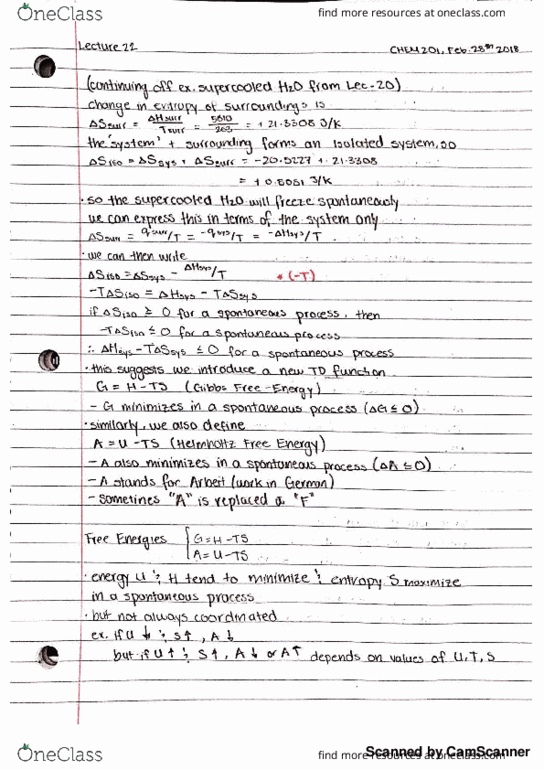 OneClass find more resources at oneclass.com
Lecture 22 CHEM 201, Feb. 28th 2018
(continuing off ex. supercooled H2O from Lec-20)
change in entropy of surroundings is
ΔSsurr = ΔHsurr/Tsurr = 5610/263 = +21.3308 J/K
the 'system' + surrounding forms an isolated system, so
ΔSiso = ΔSsys + ΔSsurr = -20.5227 + 21.3308
= +0.8081 J/K
· so the supercooled H2O will freeze spontaneously
we can express this in terms of the system only
ΔSsurr = qsurr/T = -qsys/T = -ΔHsys/T
· we can then write
ΔSiso = ΔSsys - ΔHsys/T * (-T)
-TΔSiso = ΔHsys - TΔSsys
if ΔSiso ≥ 0 for a spontaneous process, then
-TΔSiso ≤ 0 for a spontaneous process
∴ ΔHsys - TΔSsys ≤ 0 for a spontaneous process
· this suggests we introduce a new TD function
G = H - TS (Gibbs Free-Energy)
- G minimizes in a spontaneous process (ΔG ≤ 0)
· similarly, we also define
A = U - TS (Helmholtz Free Energy)
- A also minimizes in a spontaneous process (ΔA ≤ 0)
- A stands for Arbeit (work in German)
- sometimes "A" is replaced a "F"
Free Energies { G = H - TS
A = U - TS
· energy U & H tend to minimize & entropy S maximize
in a spontaneous process
· but not always coordinated
ex. if U ↓ & S↑, A ↓
but if U↑ & S↑, A↓ or A↑ depends on values of U, T, S
OneClass find more resources at oneclass.com
Scanned by CamScanner